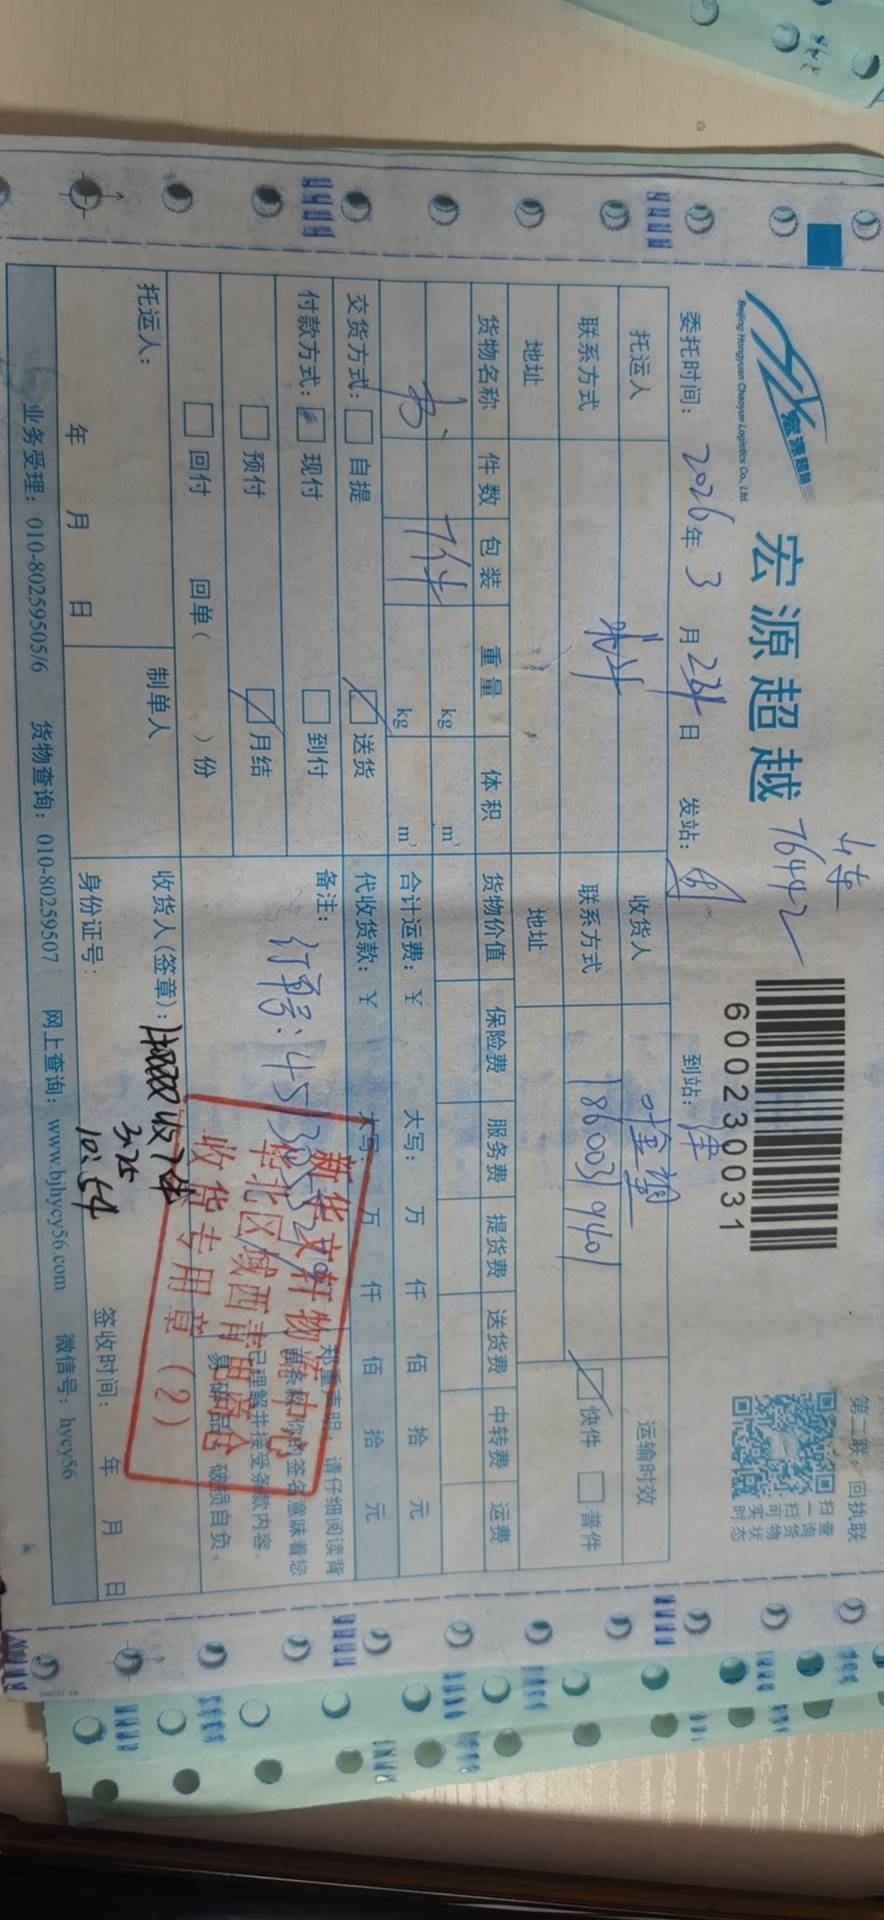 宏源超越
Beijing Hongyuan Chaoyue Logistics Co., Ltd.
宏源超越
76442
600230031
第二联：回执联
扫一扫可实时
查询货物状态
委托时间：2026年3月23日 发站： 到站：津
托运人 收货人 运输时效
联系方式 联系方式 1860031940 快件 普件
地址 地址
货物名称 件数 包装 重量 体积 货物价值 保险费 服务费 提货费 送货费 中转费 运费
书 7件 kg m³
kg m³ 合计运费：¥ 大写： 万 仟 佰 拾 元
交货方式： 自提 送货 代收货款：¥ 大写： 万 仟 佰 拾 元
付款方式： 现付 到付 备注：订单号：
预付 月结
回付 回单（ ）份
郑重声明：请仔细阅读背
面条款，你的签名意味着您
已理解并接受条款内容。
易碎品 破损自负。
新华文轩物流中心
华北区域西青
收货专用章（2）
托运人： 制单人 收货人(签章)： 收7件
3.25
10:54
年 月 日 身份证号： 签收时间： 年 月 日
业务受理：010-80259505/6 货物查询：010-80259507 网上查询：www.bjhycy56.com 微信号：hycy56